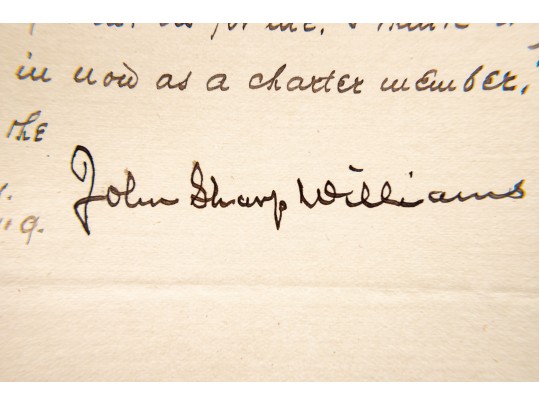 for me. I think
in now as a charter member,
the
John Sharp Williams